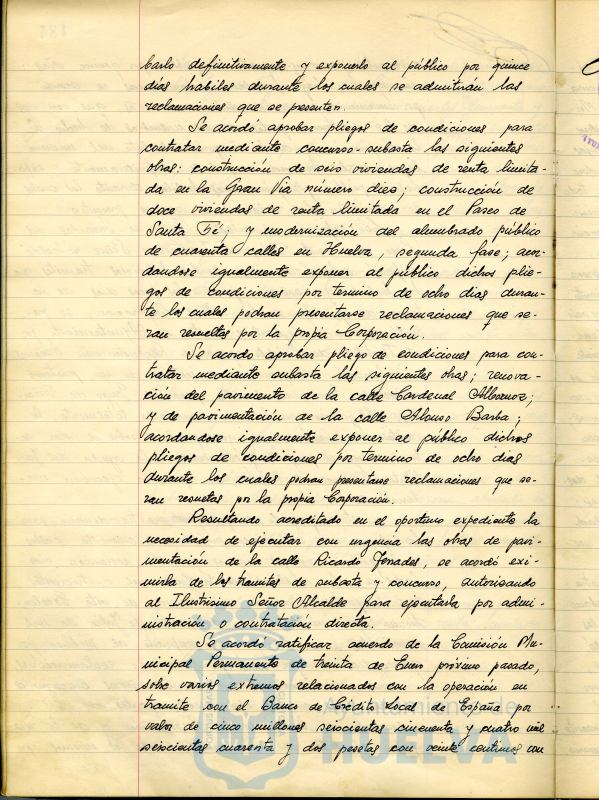 barlo definitivamente y exponerlo al público por quince
días habiles durante los cuales se admitirán las
reclamaciones que se presenten.
Se acordó aprobar pliegos de condiciones para
contratar mediante concurso-subasta las siguientes
obras: construcción de seis viviendas de renta limita-
da en la Gran Via número diez; construcción de
doce viviendas de renta limitada en el Paseo de
Santa Fé; y modernización del alumbrado público
de cuarenta calles en Huelva, segunda fase; acor-
dandose igualmente exponer al público dichos plie-
gos de condiciones por termino de ocho dias duran-
te los cuales podran presentarse reclamaciones que se-
ran resueltas por la propia Corporación.
Se acordo aprobar pliego de condiciones para con-
tratar mediante subasta las siguientes obras; renova-
ción del pavimento de la calle Cardenal Albornoz;
y de pavimentación de la calle Alonso Barba;
acordandose igualmente exponer al público dichos
pliegos de condiciones por termino de ocho dias
durante los cuales podran presentarse reclamaciones que se-
ran resueltas por la propia Corporación.
Resultando acreditado en el oportuno expediente la
necesidad de ejecutar con urgencia las obras de pavi-
mentación de la calle Ricardo Terrades, se acordó exi-
mirla de los tramites de subasta y concurso, autorizando
al Ilustrisimo Señor Alcalde para ejecutarla por admi-
nistración o contratación directa.
Se acordó ratificar acuerdo de la Comisión Mu-
nicipal Permanente de treinta de Enero próximo pasado,
sobre varios extremos relacionados con la operación en
tramite con el Banco de Crédito Local de España por
valor de cinco millones seiscientas cincuenta y cuatro mil
seiscientas cuarenta y dos pesetas con veinte centimos con
Ayuntamiento de
HUELVA